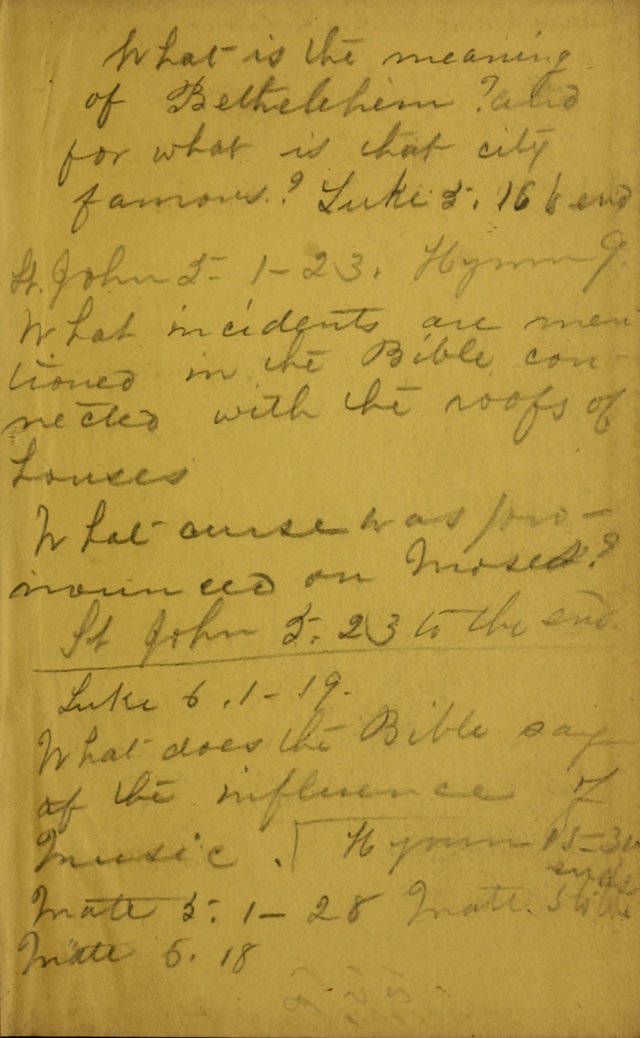 What is the meaning
of Bethelehem ? and
for what is that city
famous ? Luke 5. 16 to end
St. John 5. 1 - 23. Hymn 9.
What incidents are men
tioned in the Bible con-
nected with the roofs of
houses
What curse was pro-
nounced on Moses ?
St John 5. 23 to the end
Luke 6. 1 - 19.
What does the Bible say
of the influence of
music . Hymn 15 -
Matt 5. 1 - 28 Matt.
Matt 6. 18